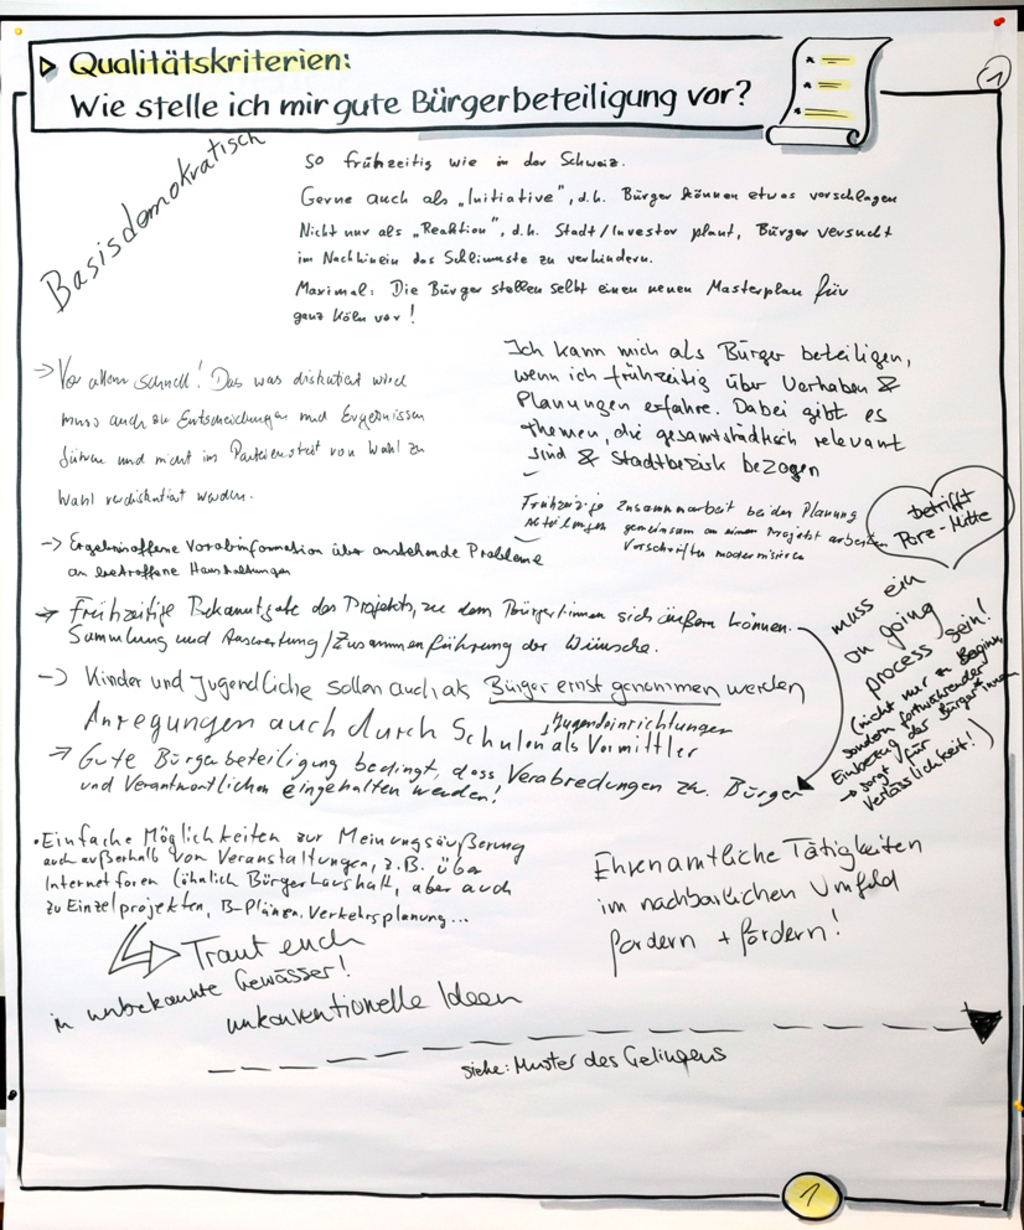 Qualitätskriterien:
Wie stelle ich mir gute Bürgerbeteiligung vor?
1
Basisdemokratisch
so frühzeitig wie in der Schweiz.
Gerne auch als „Initiative", d.h. Bürger können etwas vorschlagen
Nicht nur als „Reaktion", d.h. Stadt/Investor plant, Bürger versucht
im Nachhinein das Schlimmste zu verhindern.
Maximal: Die Bürger stellen selbt einen neuen Masterplan für
ganz Köln vor!
→ Vor allem schnell! Das was diskutiert wird
muss auch zu Entscheidungen und Ergebnissen
führen und nicht im Parteienstreit von Wahl zu
Wahl verdiskutiert werden.
Ich kann mich als Bürger beteiligen,
wenn ich frühzeitig über Vorhaben &
Planungen erfahre. Dabei gibt es
Themen, die gesamtstädtisch relevant
sind & Stadtbezirk bezogen
Frühzeitige Zusammenarbeit bei der Planung
Abteilungen gemeinsam an einem Projekt arbeiten
Vorschriften modernisieren
betrifft
Porz-Mitte
→ Ergebnisoffene Vorabinformation über anstehende Probleme
an betroffene Haushaltungen
→ Frühzeitige Bekanntgabe des Projekts, zu dem Bürger*innen sich äußern können.
Sammlung und Auswertung/Zusammenführung der Wünsche.
muss ein
on going
process sein!
(nicht nur zu Beginn,
sondern fortwährender
Einbezug der Bürger*innen
→ sorgt für
Verlässlichkeit!)
→ Kinder und Jugendliche sollen auch als Bürger ernst genommen werden
Anregungen auch durch Schulen, Jugendeinrichtungen als Vermittler
→ Gute Bürgerbeteiligung bedingt, dass Verabredungen zw. Bürgern
und Verantwortlichen eingehalten werden!
• Einfache Möglichkeiten zur Meinungsäußerung
auch außerhalb von Veranstaltungen, z.B. über
Internetforen (ähnlich Bürgerhaushalt, aber auch
zu Einzelprojekten, B-Plänen, Verkehrsplanung...
Traut euch
in unbekannte Gewässer!
unkonventionelle Ideen
Ehrenamtliche Tätigkeiten
im nachbarlichen Umfeld
fordern + fördern!
siehe: Muster des Gelingens
1